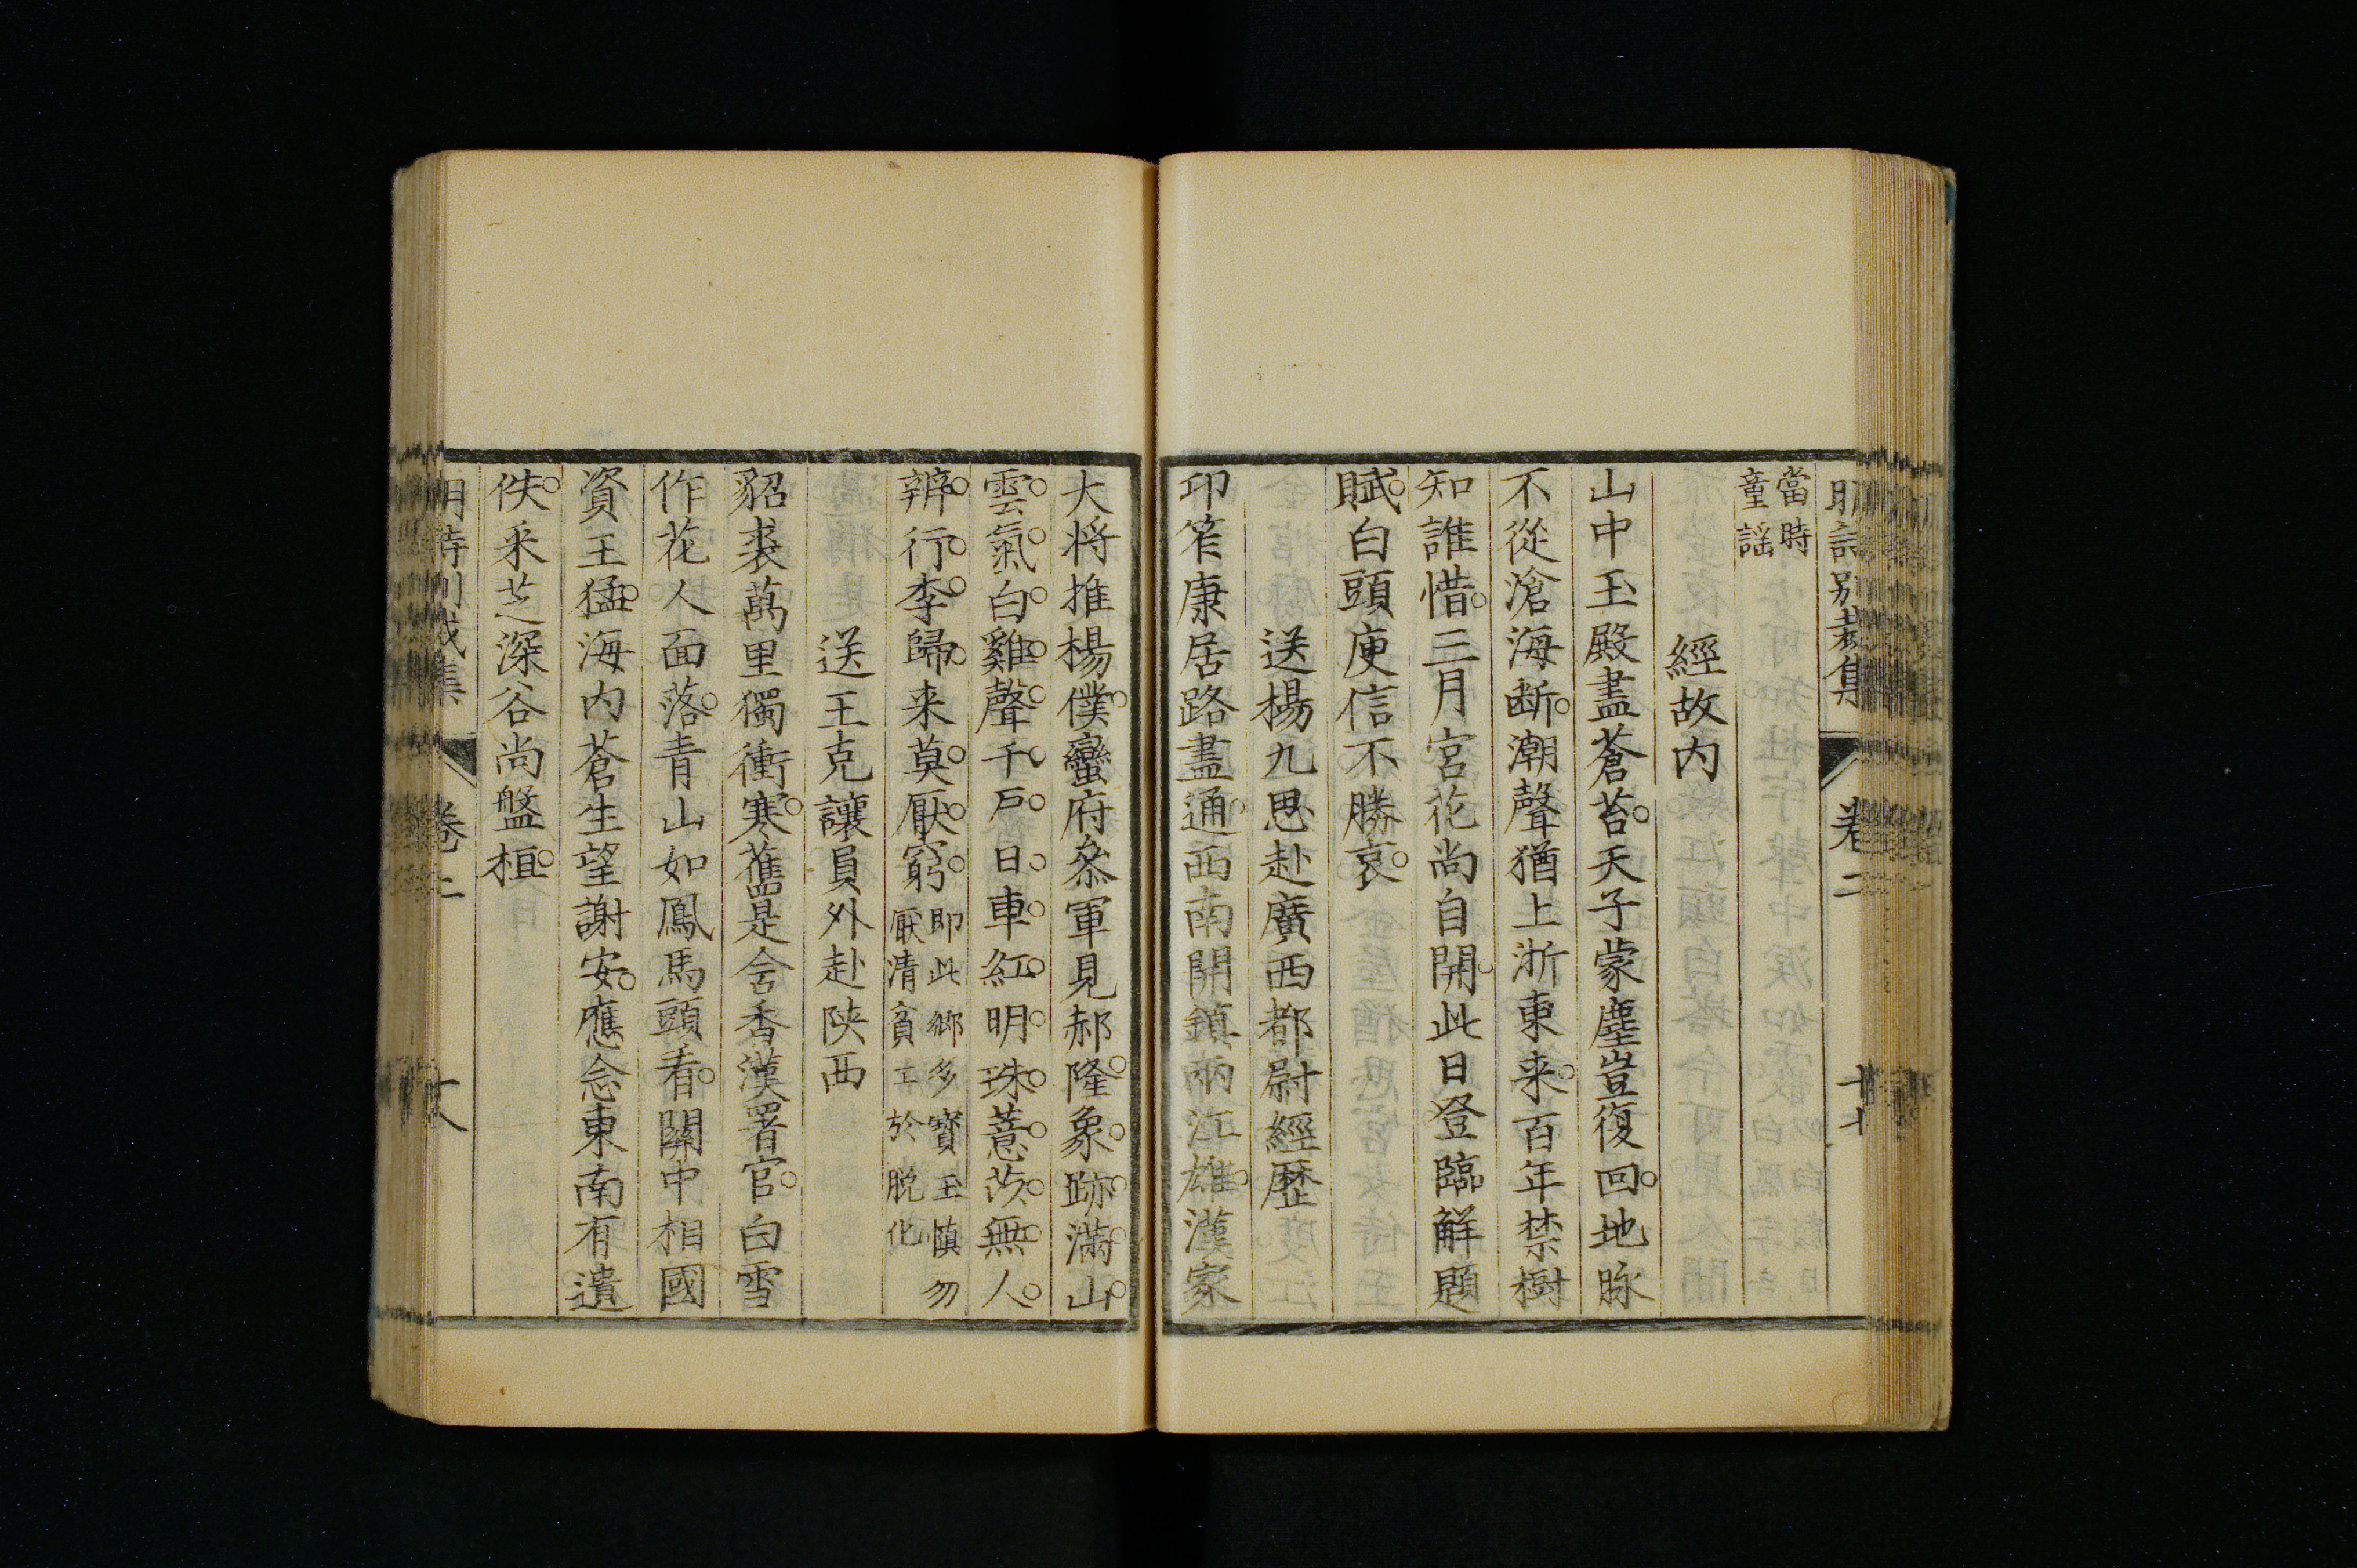 明詩別裁集 卷二 十七
當時
童謡
經故内
山中玉殿盡蒼苔。天子蒙塵豈復回。地脉
不從滄海断。潮聲猶上浙東来。百年禁樹
知誰惜。三月宮花尚自開。此日登臨觧題
賦。白頭庾信不勝哀。
送楊九思赴廣西都尉經歷
卭笮康居路盡通。西南開鎮兩江雄。漢家
大将推楊僕。蠻府叅軍見郝隆。象跡滿山
雲氣白。雞聲千戶日車紅。明珠薏苡無人
辨。行李歸来莫厭窮。
即此鄉多寳玉慎勿
厭清貧工於脫化
送王克讓員外赴陝西
貂裘萬里獨衝寒。舊是含香漢署官。白雪
作花人面落。青山如鳳馬頭看。關中相國
資王猛。海内蒼生望謝安。應念東南有遺
佚。采芝深谷尚盤桓。
明詩別裁集 卷二